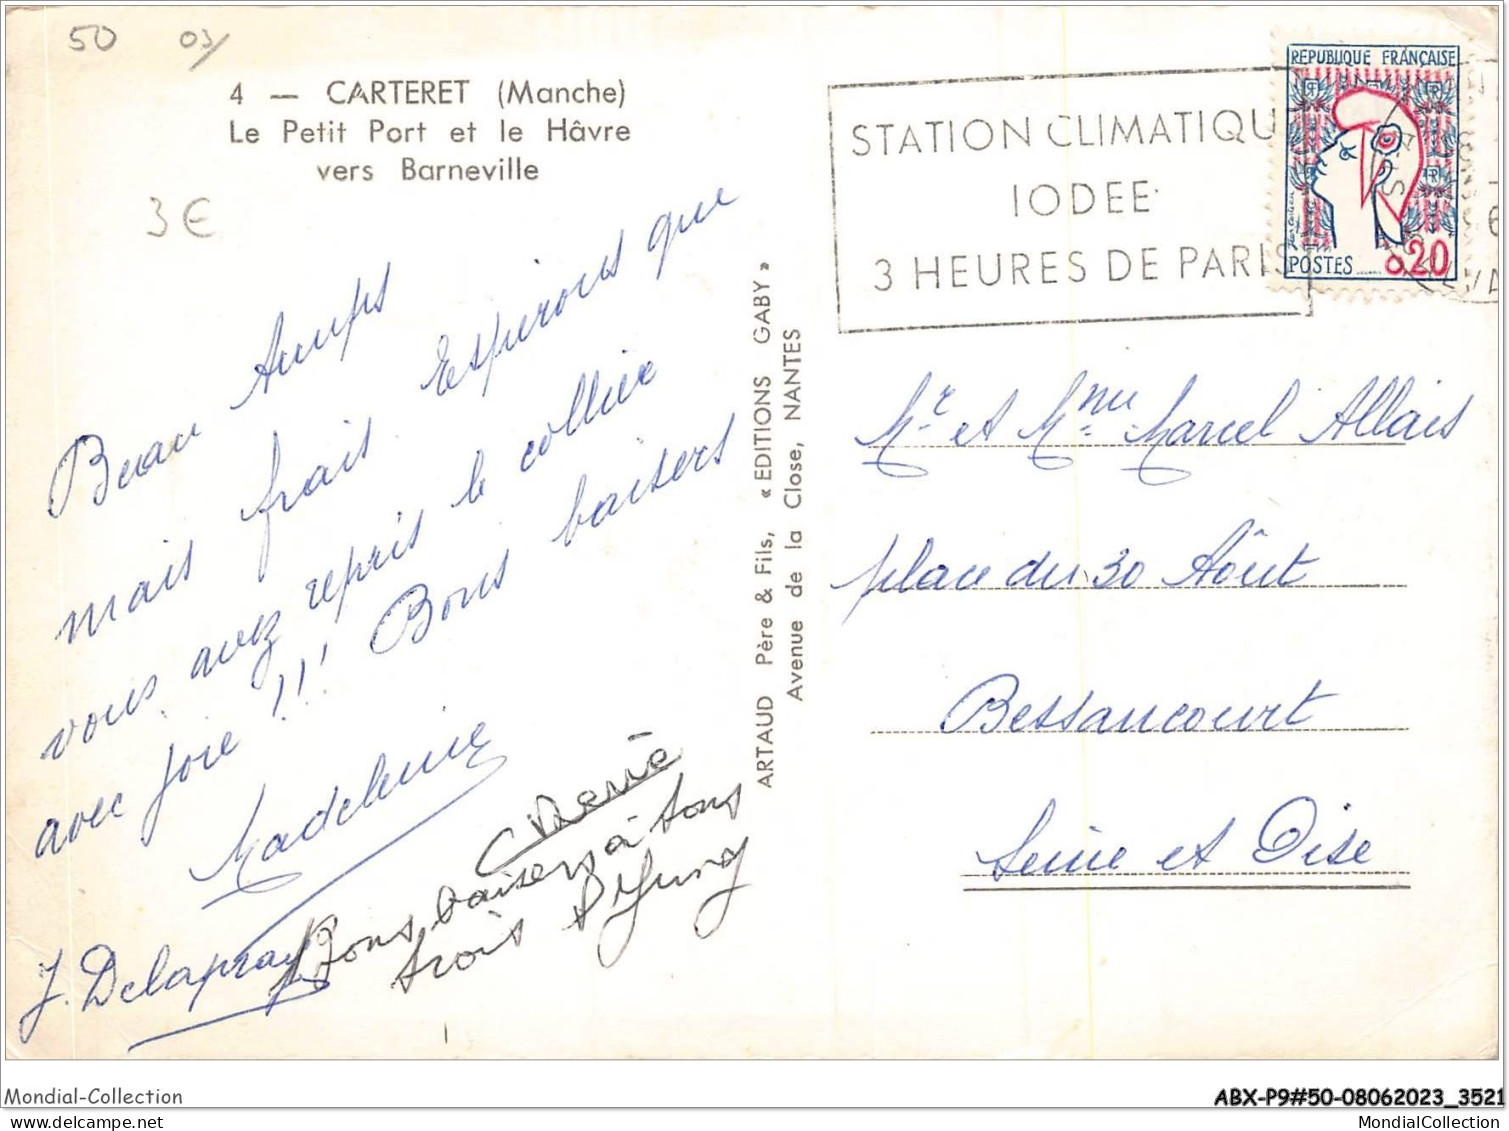 50 03/
4 — CARTERET (Manche)
Le Petit Port et le Hâvre
vers Barneville
3 €
Beau temps
mais frais Espérons que
vous avez repris le collier
avec joie !!! Bons baisers
Madeleine
J. Delapray
Bons baisers à tous
trois
ARTAUD Père & Fils, « EDITIONS GABY »
Avenue de la Close, NANTES
STATION CLIMATIQU
IODEE
3 HEURES DE PARIS
REPUBLIQUE FRANÇAISE
POSTES 0,20
Mr et Mme Marcel Allais
place du 30 Août
Bessancourt
Seine et Oise
Mondial-Collection
ABX-P9#50-08062023_3521
MondialCollection
MondialCollection